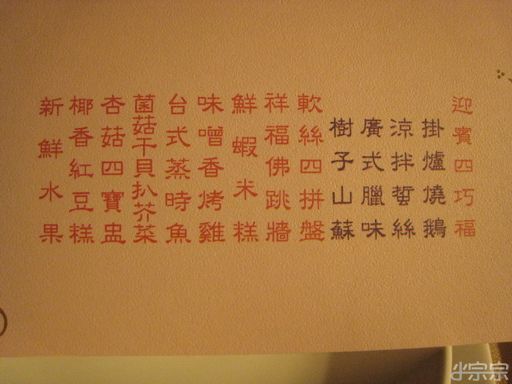 迎賓四巧福
掛爐燒鵝
涼拌蜇絲
廣式臘味
樹子山蘇
軟絲四拼盤
祥福佛跳牆
鮮蝦米糕
味噌香烤雞
台式蒸時魚
菌菇干貝扒芥菜
杏菇四寶盅
椰香紅豆糕
新鮮水果
小宗宗